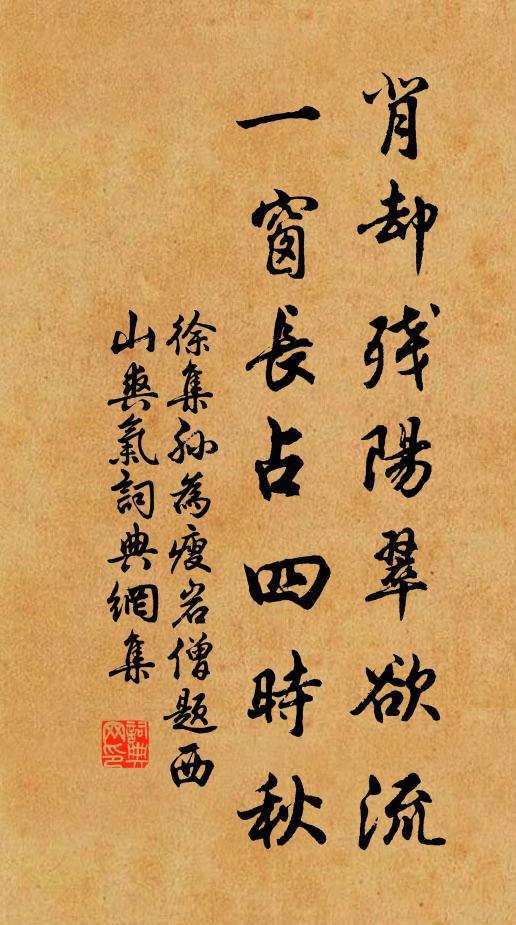 背却残陽翠欲流
一窗長占四時秋
徐集孫為瘦岩僧题西
山爽氣詞典網集
詞典网印